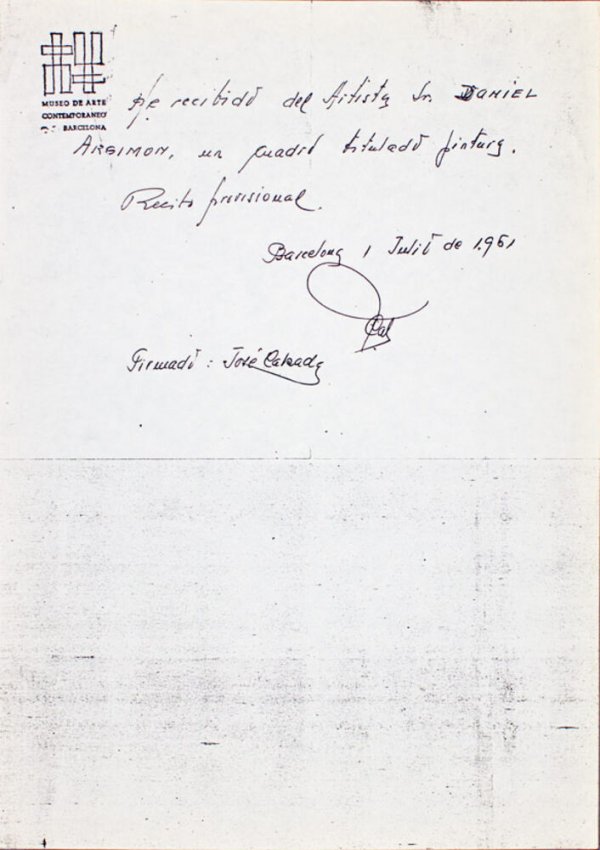 MUSEO DE ARTE
CONTEMPORANEO
DE BARCELONA
He recibido del Artista Sr. DANIEL
ARGIMON, un cuadro titulado pintura.
Recibo provisional.
Barcelona 1 Julio de 1.961
Firmado: José